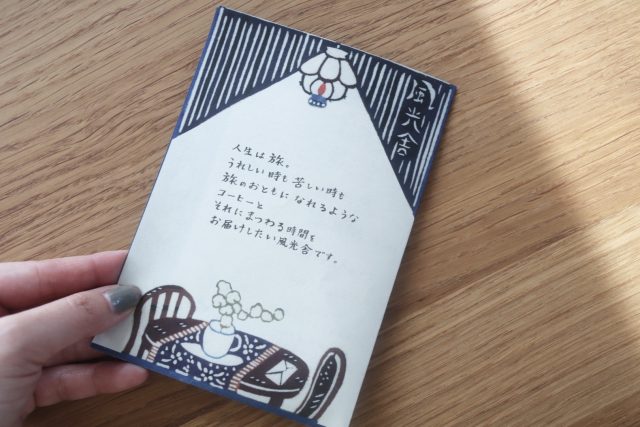 風光舎
人生は旅。
うれしい時も苦しい時も
旅のおともになれるような
コーヒーと
それにまつわる時間を
お届けしたい風光舎です。